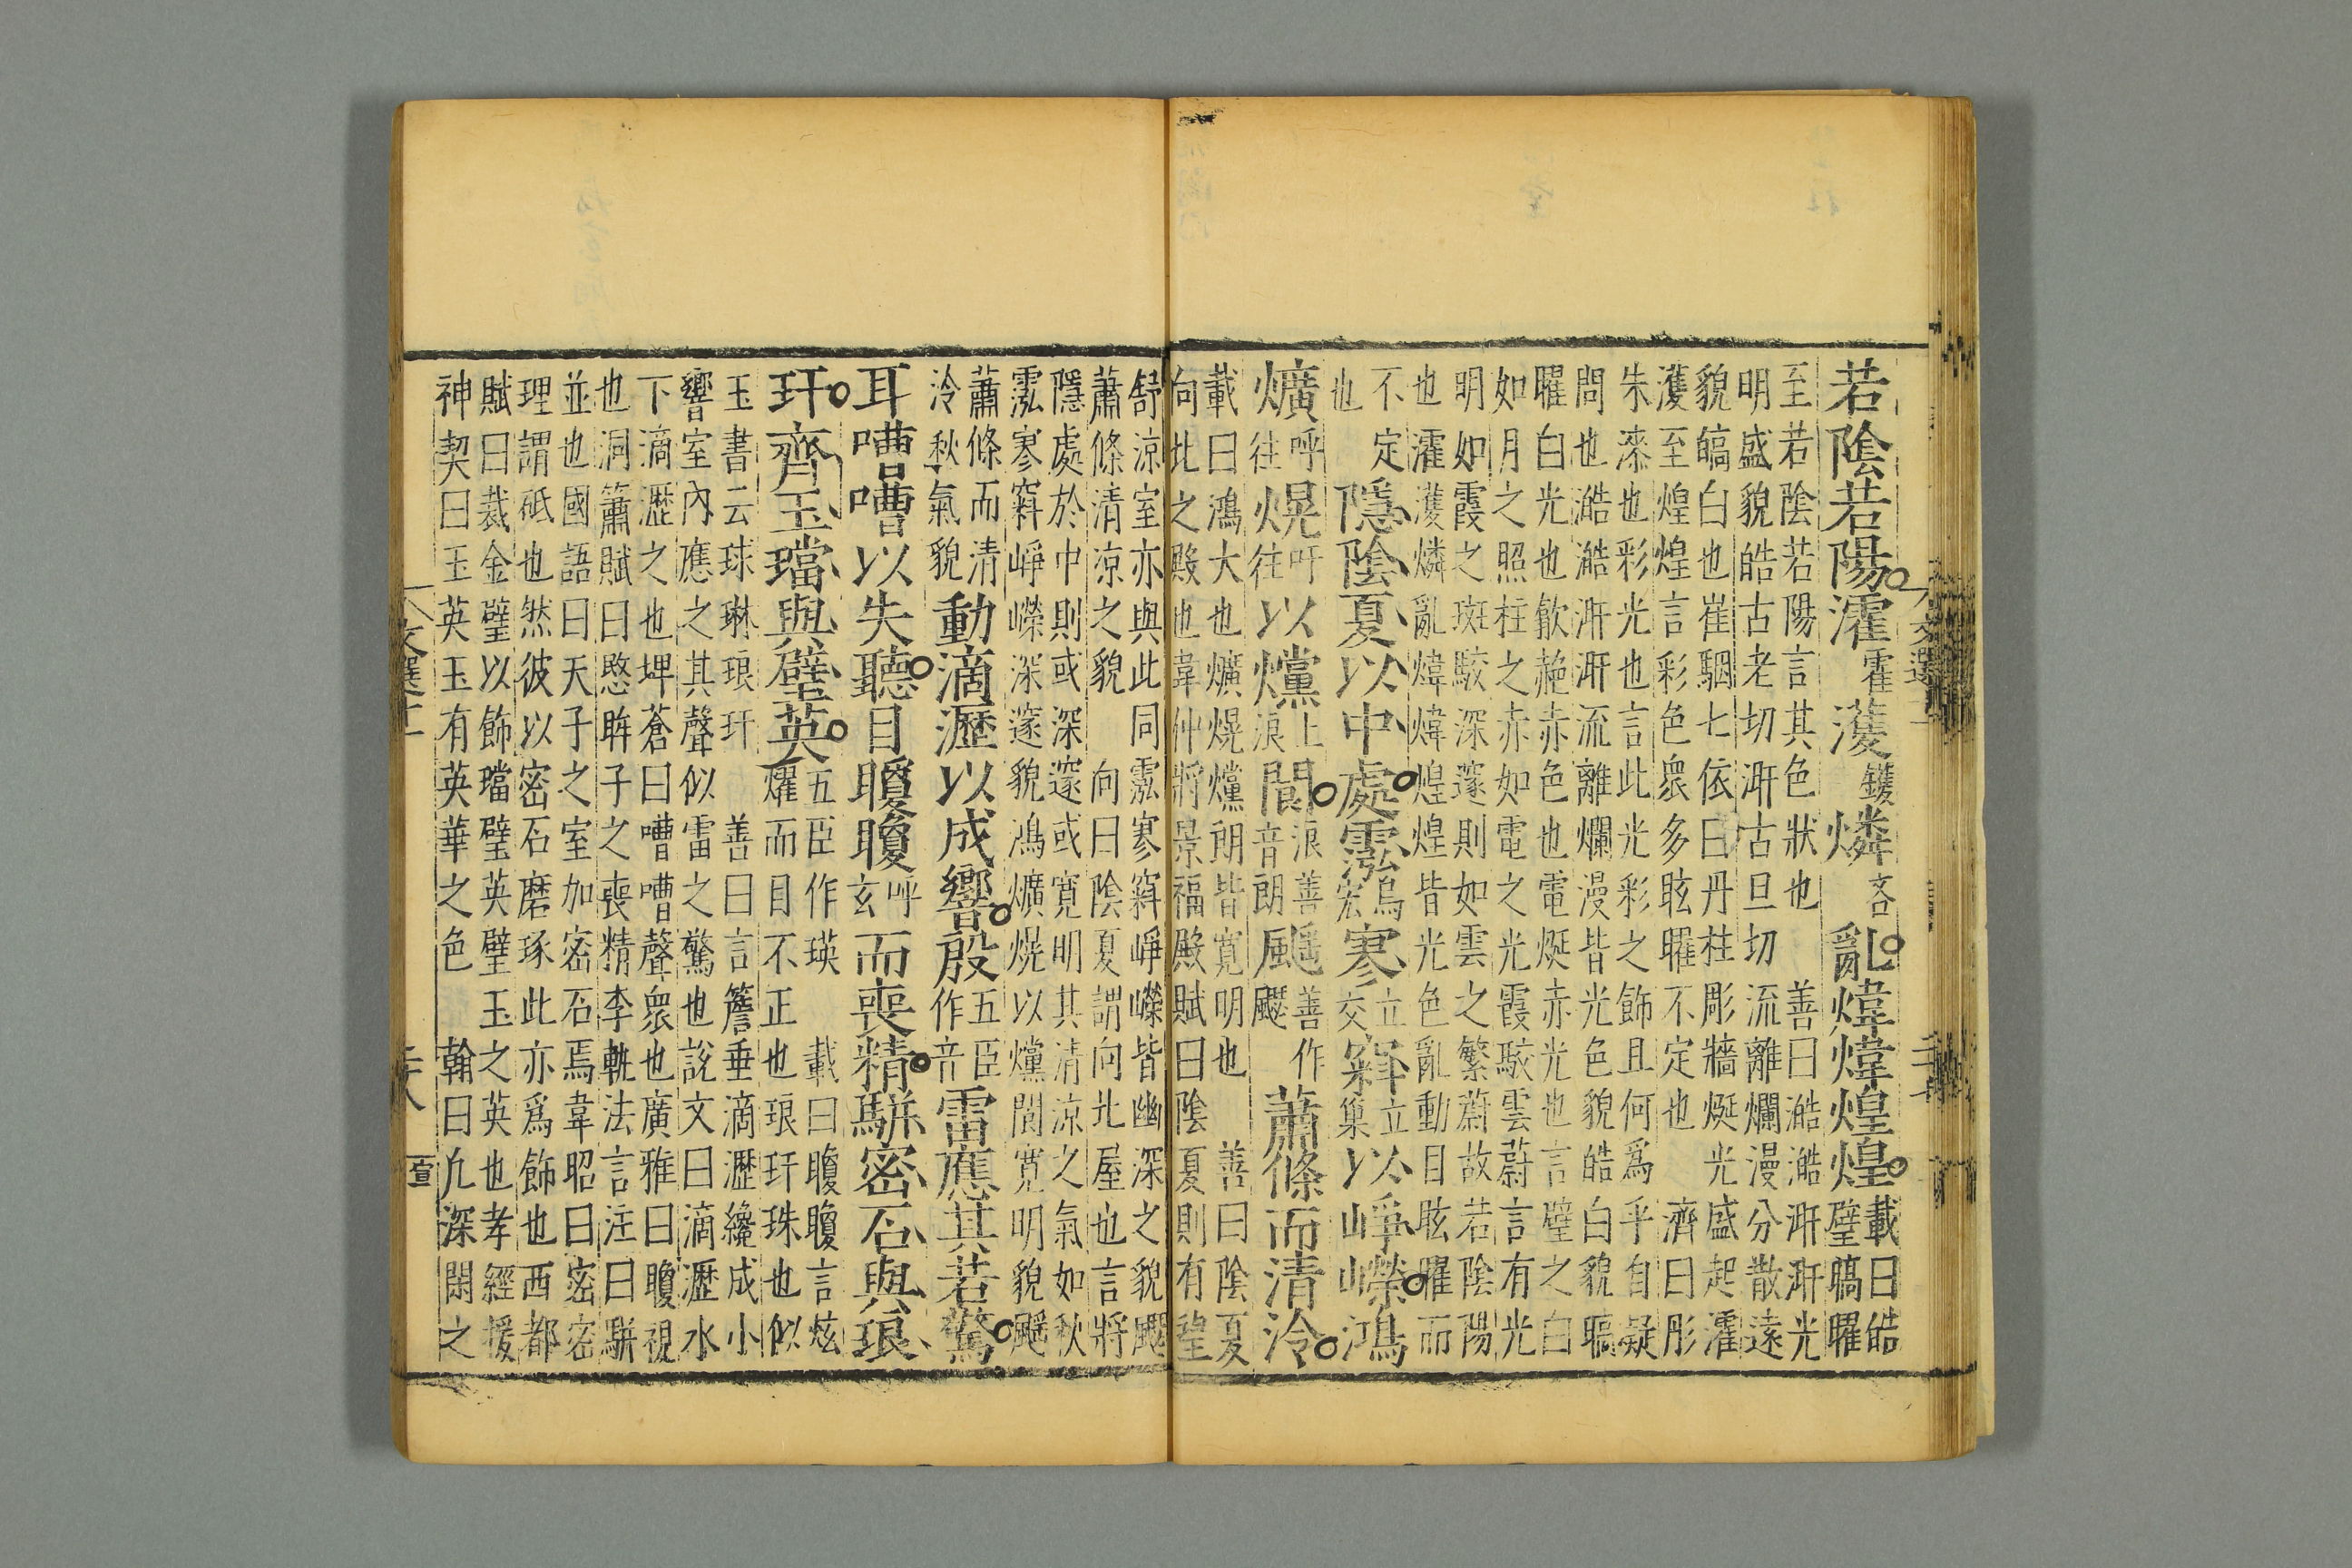 若陰若陽灌霍濩鑊燐吝亂煒煒煌煌載曰皓璧暠曜
至若陰若陽言其色狀也善曰澔澔涆涆光
明盛貌皓古老切涆古旦切流離爛漫分散遠
貌皜白也崔駰七依曰丹柱彫牆烻光盛起灌
濩至煌煌言彩色衆多眩曜不定也濟曰彤
朱漆也彩光也言此光彩之飾且何爲乎自疑
問也澔澔涆涆流離爛漫皆光色貌皓白貌暠
曜白光也歙赩赤色也電烻赤光也言璧之白
如月之照柱之赤如電之光霞駮雲蔚言有光
明如霞之斑駮深邃則如雲之繁蔚故若陰陽
也灌濩燐亂煒煒煌煌皆光色亂動目眩曜而
不定也隱陰夏以中處霐烏宏寥立交窲立巢以崢嶸鴻
爌呼往熀吁往以爣上浪閬浪音朗善作飋飂蕭條而清泠
載曰鴻大也爌熀爣朗皆寬明也善曰陰夏
向北之殿也韋仲將景福殿賦曰陰夏則有望
舒涼室亦與此同霐寥窲崢嶸皆幽深之貌飋
蕭條清涼之貌向曰陰夏謂向北屋也言將
隱處於中則或深邃或寬明其清涼之氣如秋
霐寥窲崢嶸深邃貌鴻爌熀以爣閬寬明貌飋
蕭條而清泠秋氣貌動滴瀝以成響殷五臣作音雷應其若驚
耳嘈嘈以失聽目矎矎呼玄而喪精駢密石與琅
玕齊玉璫與璧英五臣作瑛燿而目不正也載曰矎矎言炫琅玕珠也似
玉書云球琳琅玕善曰言簷垂滴瀝纔成小
響室內應之其聲似雷之驚也說文曰滴瀝水
下滴瀝之也埤蒼曰嘈嘈聲衆也廣雅曰矎視
也洞簫賦曰愍眸子之喪精李軌法言注曰駢
並也國語曰天子之室加密石焉韋昭曰密密
理謂砥也然彼以密石磨琢此亦爲飾也西都
賦曰裁金璧以飾璫璧英璧玉之英也孝經援
神契曰玉英玉有英華之色翰曰凡深閑之
文選十一
六八